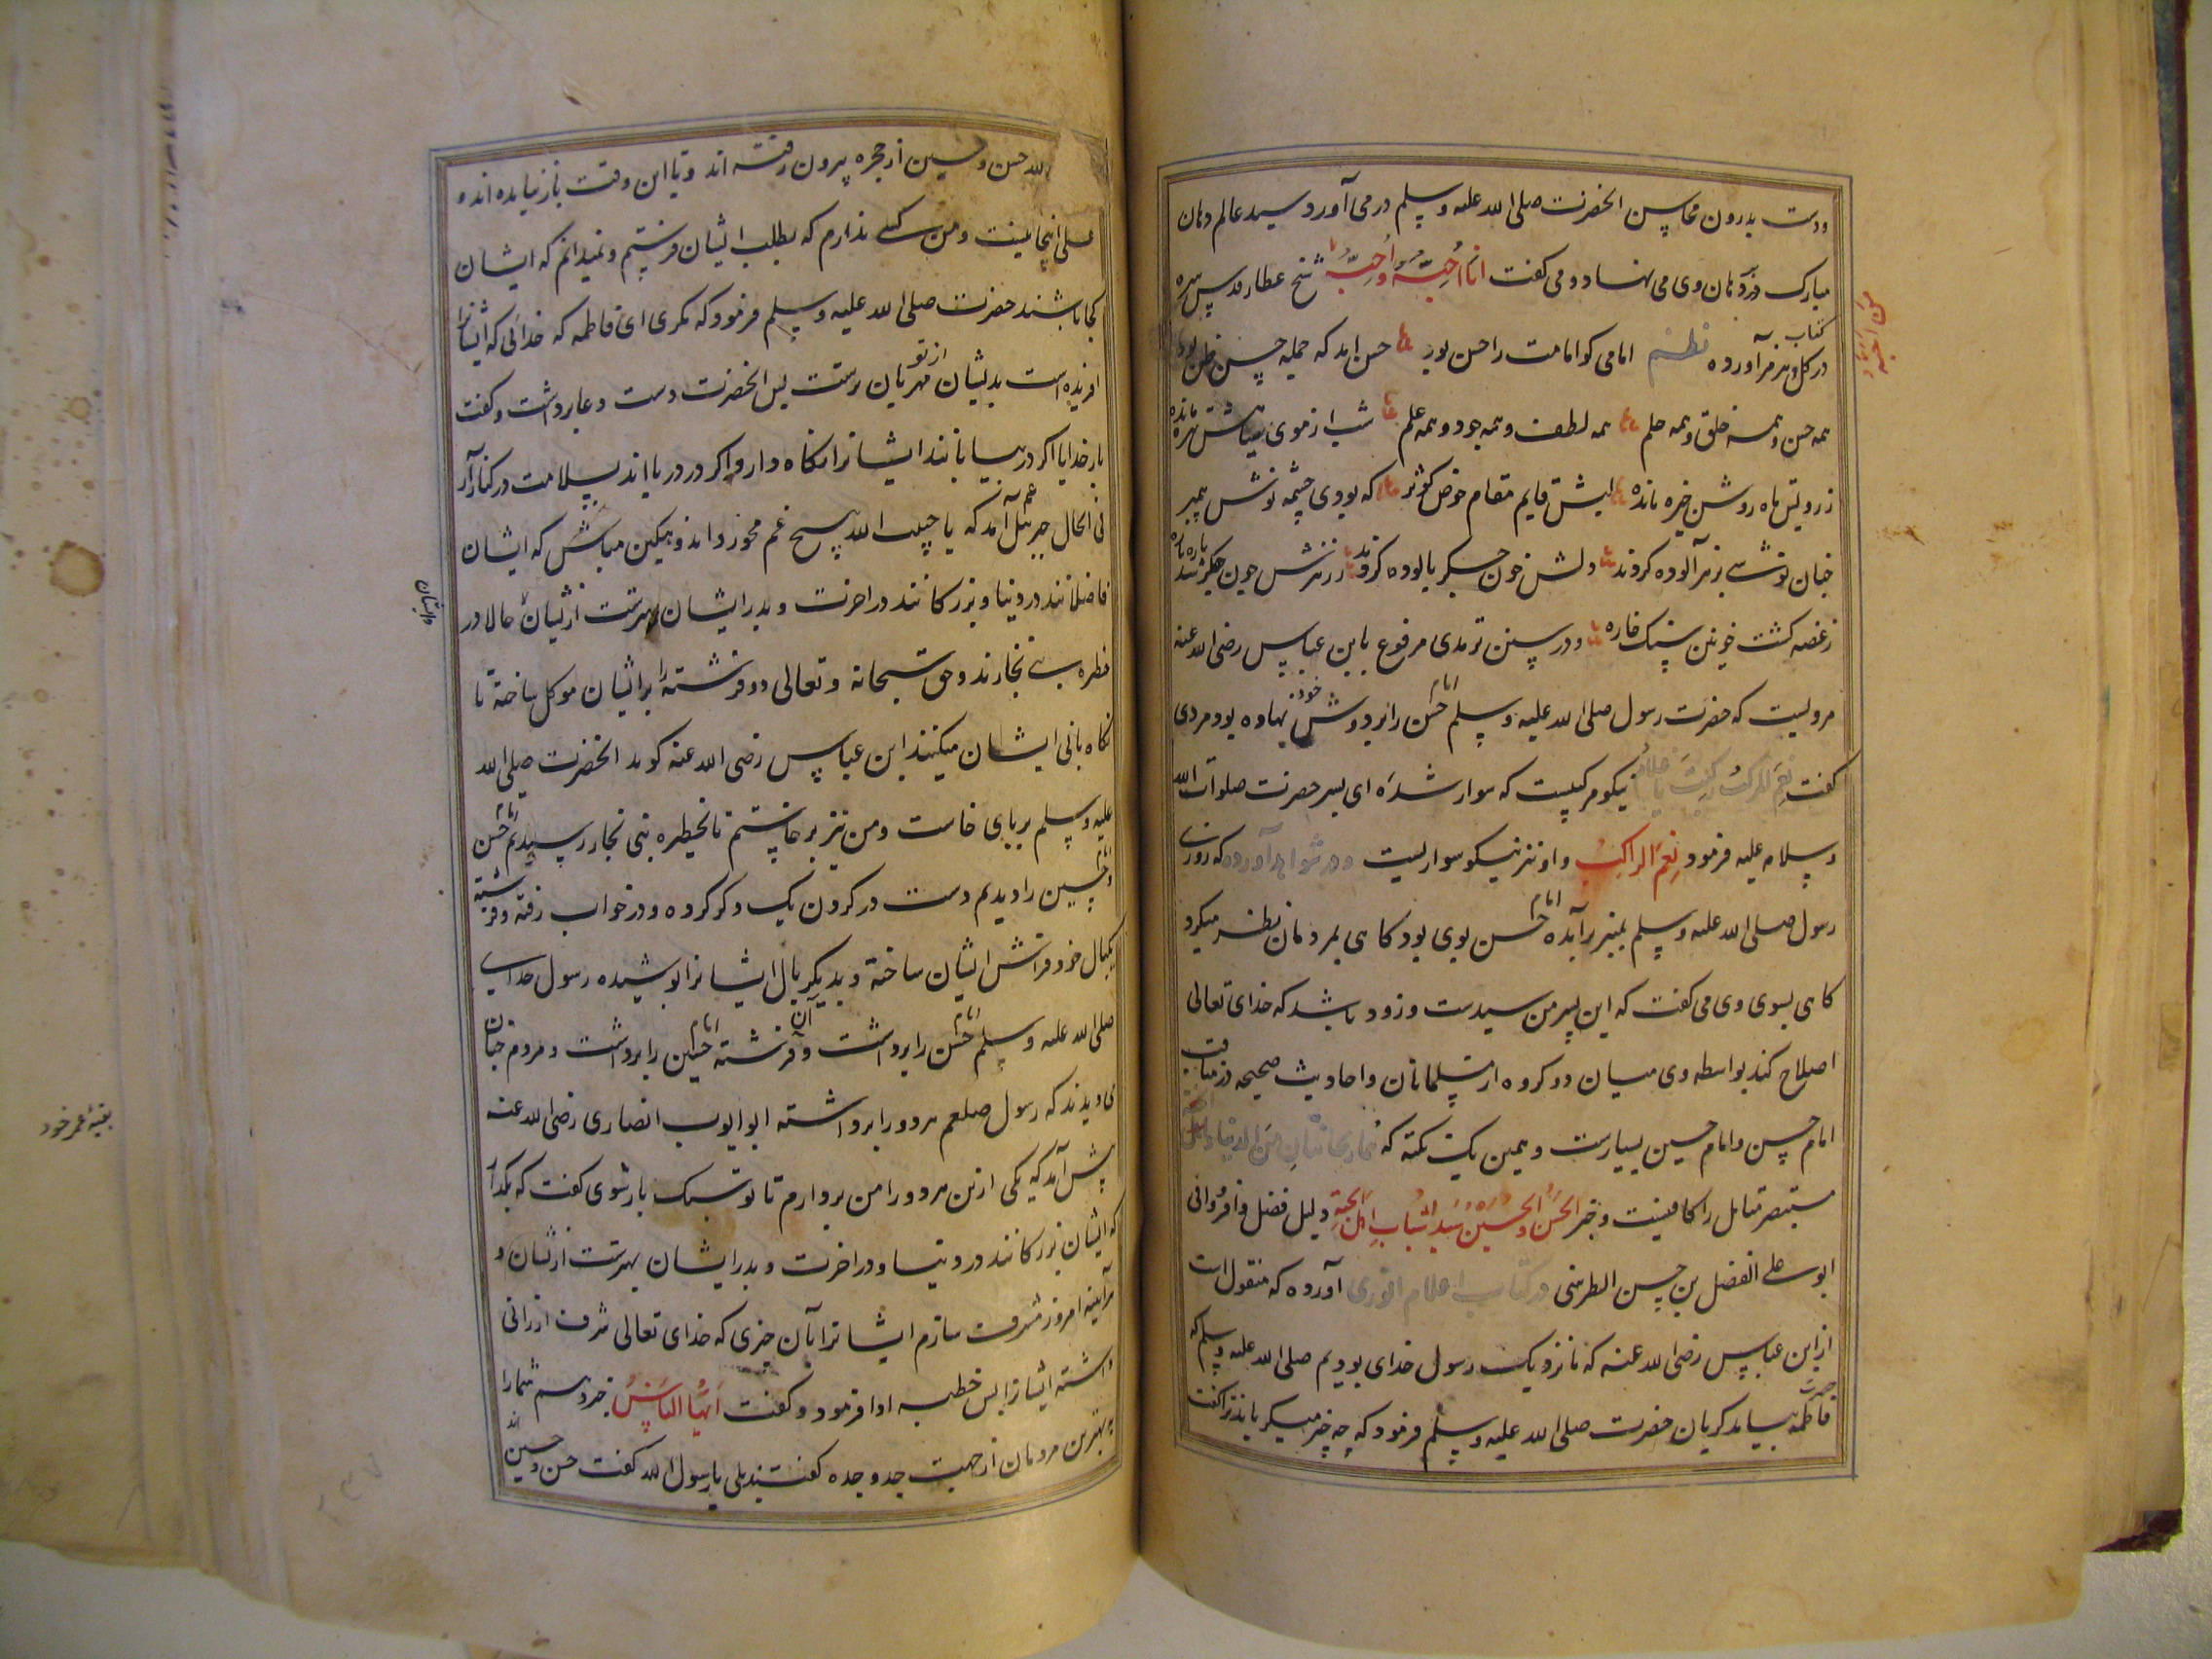 ودست بدرون محاسن انحضرت صلی الله علیه وسلم در می آورد سید عالم دهان
مبارک در دهان وی می نهاد و می گفت انا اُحِبُّهُ وَ اُحِبُّ شیخ عطار قدس سره
در کتاب گل و هرمز آورده نظم امامی کو امامت را حسن بود حسن امد که جمله حسن ظن بود
همه حسن و همه خلق و همه حلم همه لطف و همه جود و همه علم شب از موی سیاهش تیره مانده
ز رویش ماه روشن خیره مانده لبش قایم مقام حوض کوثر که بودی چشمه نوشش پیمبر
چنان نوشی بزهر آلوده کردند دلش خون جگر پالوده کردند ز زهرش چون جگر شد پاره پاره
ز غصه گشت خونین سنگ خاره و در سنن ترمدی مرفوع بابن عباس رضی الله عنه
مرویست که حضرت رسول صلی الله علیه وسلم امام حسن را بر دوش خود نهاده بود مردی
گفت نِعمَ المرکبُ رکبتَ یا غلام نیکو مرکبیست که سوار شدهٔ ای پسر حضرت صلوات الله
وسلامه علیه فرمود نِعمَ الراکبُ و او نیز نیکو سواریست و در شواهد آورده که روزی
رسول صلی الله علیه وسلم بمنبر برآمده امام حسن بوی بود کاهی بمردمان نظر میکرد
کاهی بسوی وی می گفت که این پسر من سیدست و زود باشد که خدای تعالی
اصلاح کند بواسطه وی میان دو کروه از مسلمانان و احادیث صحیحه در مناقب
امام حسن و امام حسین بسیارست و همین یک نکته که هما ریحانتای من الدنیا
مستبصر متامل را کافیست و خبر الحَسَنُ وَ الحُسَیْنُ سَیِّدا شَبابِ اَهلِ الجَنَّةِ دلیل فضل وافر وافی
ابو علی الفضل بن حسن الطبرسی در کتاب اعلام الوری آورده که منقول است
از ابن عباس رضی الله عنه که ما نزدیک رسول خدای بودیم صلی الله علیه وسلم که
حضرت فاطمه بیامد کریان حضرت صلی الله علیه وسلم فرمود که چه چیز میکریاند ترا گفت
الله حسن و حسین از حجره بیرون رفته اند و تا این وقت باز نیامده اند و
علی اینجا نیست و من کسی ندارم که بطلب ایشان فرستم و نمیدانم که ایشان
کجا باشند حضرت صلی الله علیه وسلم فرمود که مکری ای فاطمه که خدائی که ایشانرا
افریده است بدیشان از تو مهربان ترست پس انحضرت دست دعا برداشت و گفت
بار خدایا اگر در بیابانند ایشانرا نکاه دار و اگر در دریا اند بسلامت در کنار آر
فی الحال جبرئیل عم آمد که یا حبیب الله هیچ غم مخور و اندوهکین مباش که ایشان
فاضلانند در دنیا و بزرکانند در اخرت و پدر ایشان بهترست از ایشان حالا در
حظره بنی نجارند و حق سبحانه و تعالی دو فرشته را برایشان موکل ساخته تا
نکاه بانی ایشان میکنند ابن عباس رضی الله عنه کوید انحضرت صلی الله
علیه وسلم بر پای خاست و من نیز برخاستم تا بحظیره بنی نجار رسیدیم امام حسن
و امام حسین را دیدم دست در کردن یک دکر کرده و در خواب رفته و فرشته
یکبال خود فراش ایشان ساخته و بدیکر بال ایشانرا پوشیده رسول خدای
صلی الله علیه وسلم امام حسن را برداشت و آن فرشته امام حسین را برداشت و مردم چنان
می دیدند که رسول صلعم هر دو را برداشته ابو ایوب انصاری رضی الله عنه
پیش آمد که یکی از این هر دو را من بردارم تا تو سبک بار شوی گفت که بگذار
که ایشان بزرکانند در دنیا و در اخرت و پدر ایشان بهترست از ایشان و
هر آینه امروز مشرف سازم ایشانرا بآن چیزی که خدای تعالی شرف ارزانی
داشته ایشانرا پس خطبه ادا فرمود و گفت اَیُّهَا النّاسُ خبر دهم شما را
به بهترین مردمان از جهت جد و جده گفتند بلی یا رسول الله گفت حسن و حسین اند
بقیهٔ عمر خود